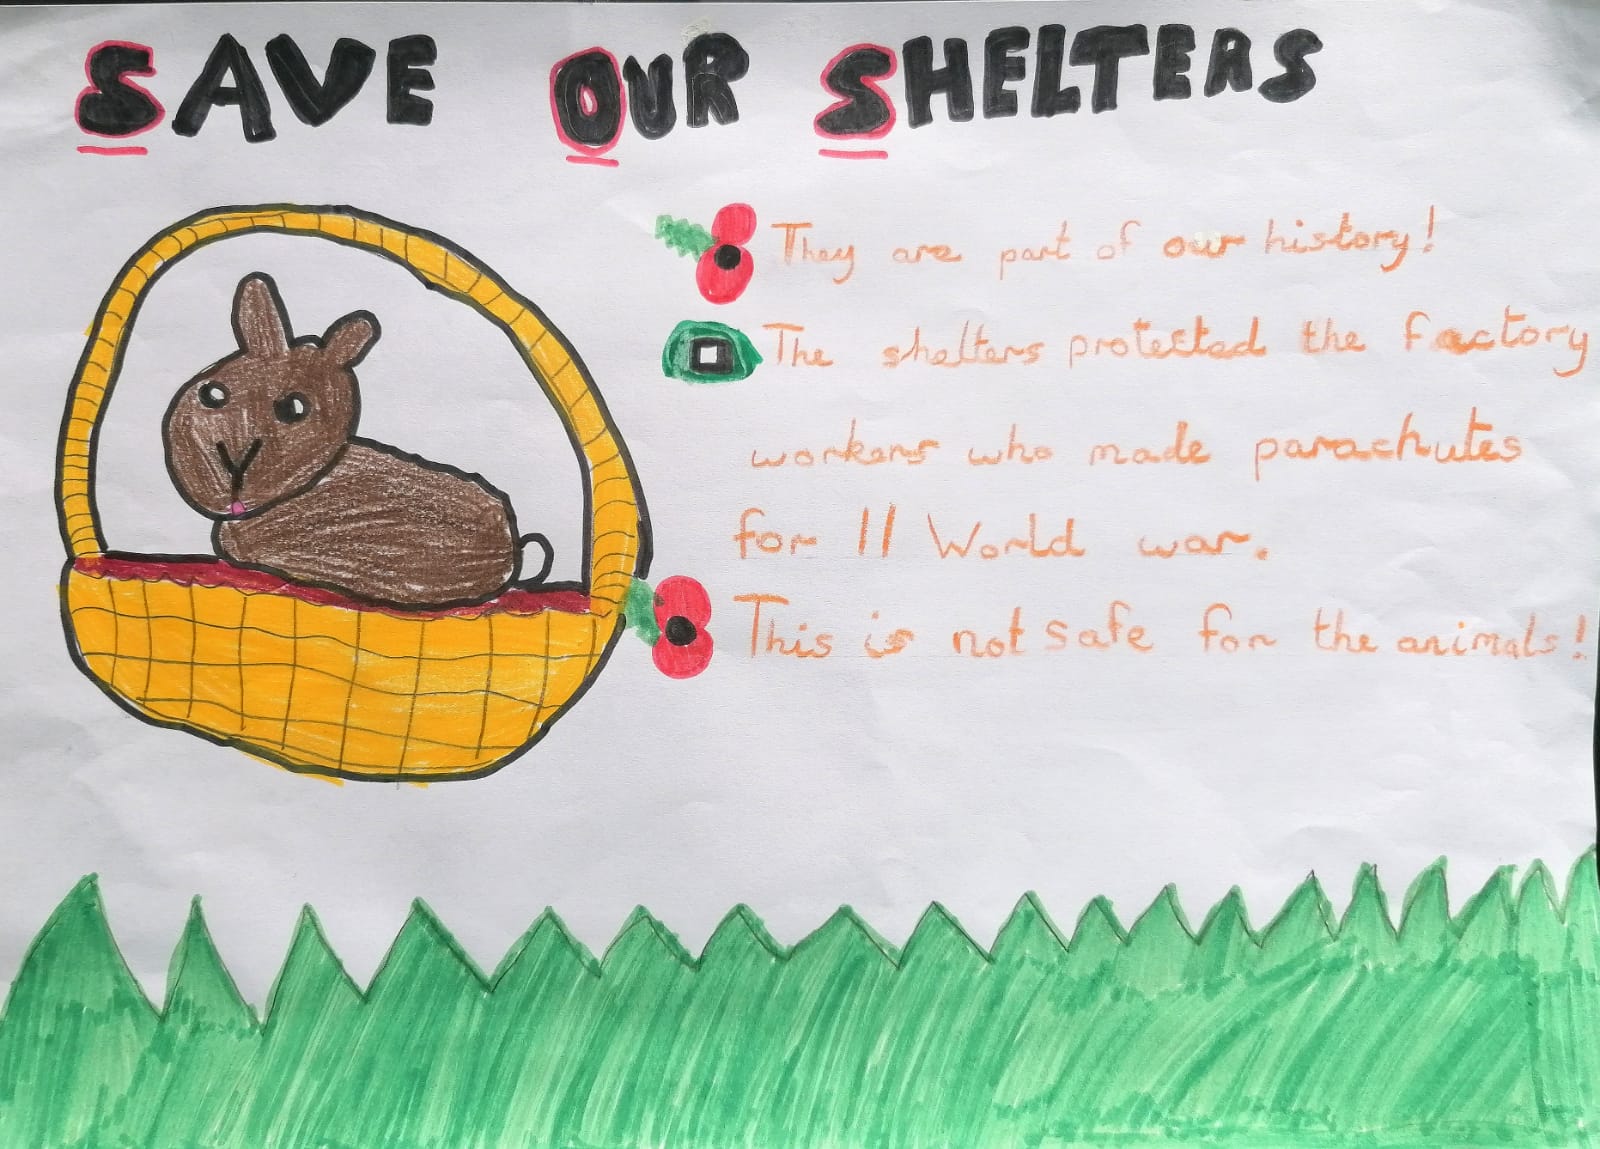 SAVE OUR SHELTERS
They are part of our history!
The shelters protected the factory
workers who made parachutes
for II World war.
This is not safe for the animals!